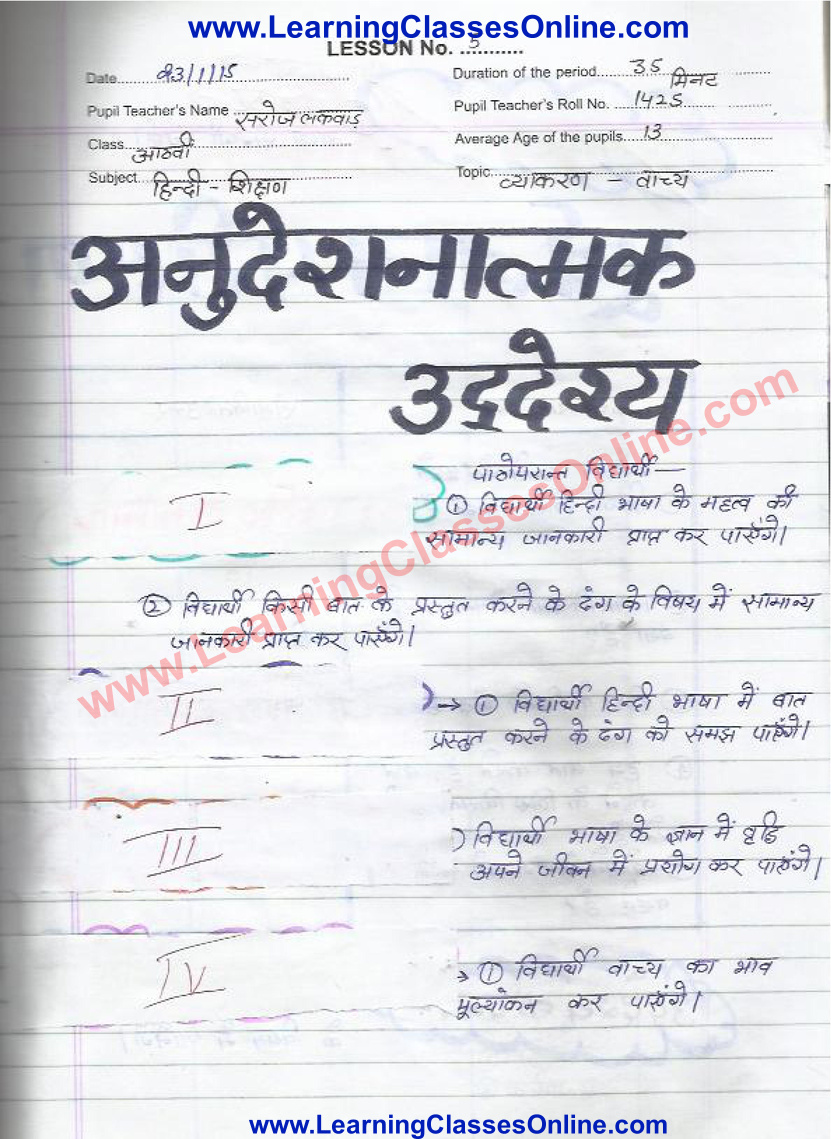 www.LearningClassesOnline.com
LESSON No. 5
Date 23/1/15
Duration of the period 35 मिनट
Pupil Teacher's Name सरोज लकवाड़
Pupil Teacher's Roll No. 1425
Class आठवीं
Average Age of the pupils 13
Subject हिन्दी - शिक्षण
Topic व्याकरण - वाच्य
अनुदेशनात्मक
उद्देश्य
पाठोपरान्त विद्यार्थी —
I
① विद्यार्थी हिन्दी भाषा के महत्व की
सामान्य जानकारी प्राप्त कर पाएँगे।
② विद्यार्थी किसी बात के प्रस्तुत करने के ढंग के विषय में सामान्य
जानकारी प्राप्त कर पाएँगे।
II
→ ① विद्यार्थी हिन्दी भाषा में बात
प्रस्तुत करने के ढंग को समझ पाएँगे।
III
विद्यार्थी भाषा के ज्ञान में वृद्धि
अपने जीवन में प्रयोग कर पाएंगे।
IV
→ ① विद्यार्थी वाच्य का भाव
मूल्यांकन कर पाएंगे।
www.LearningClassesOnline.com
www.LearningClassesOnline.com